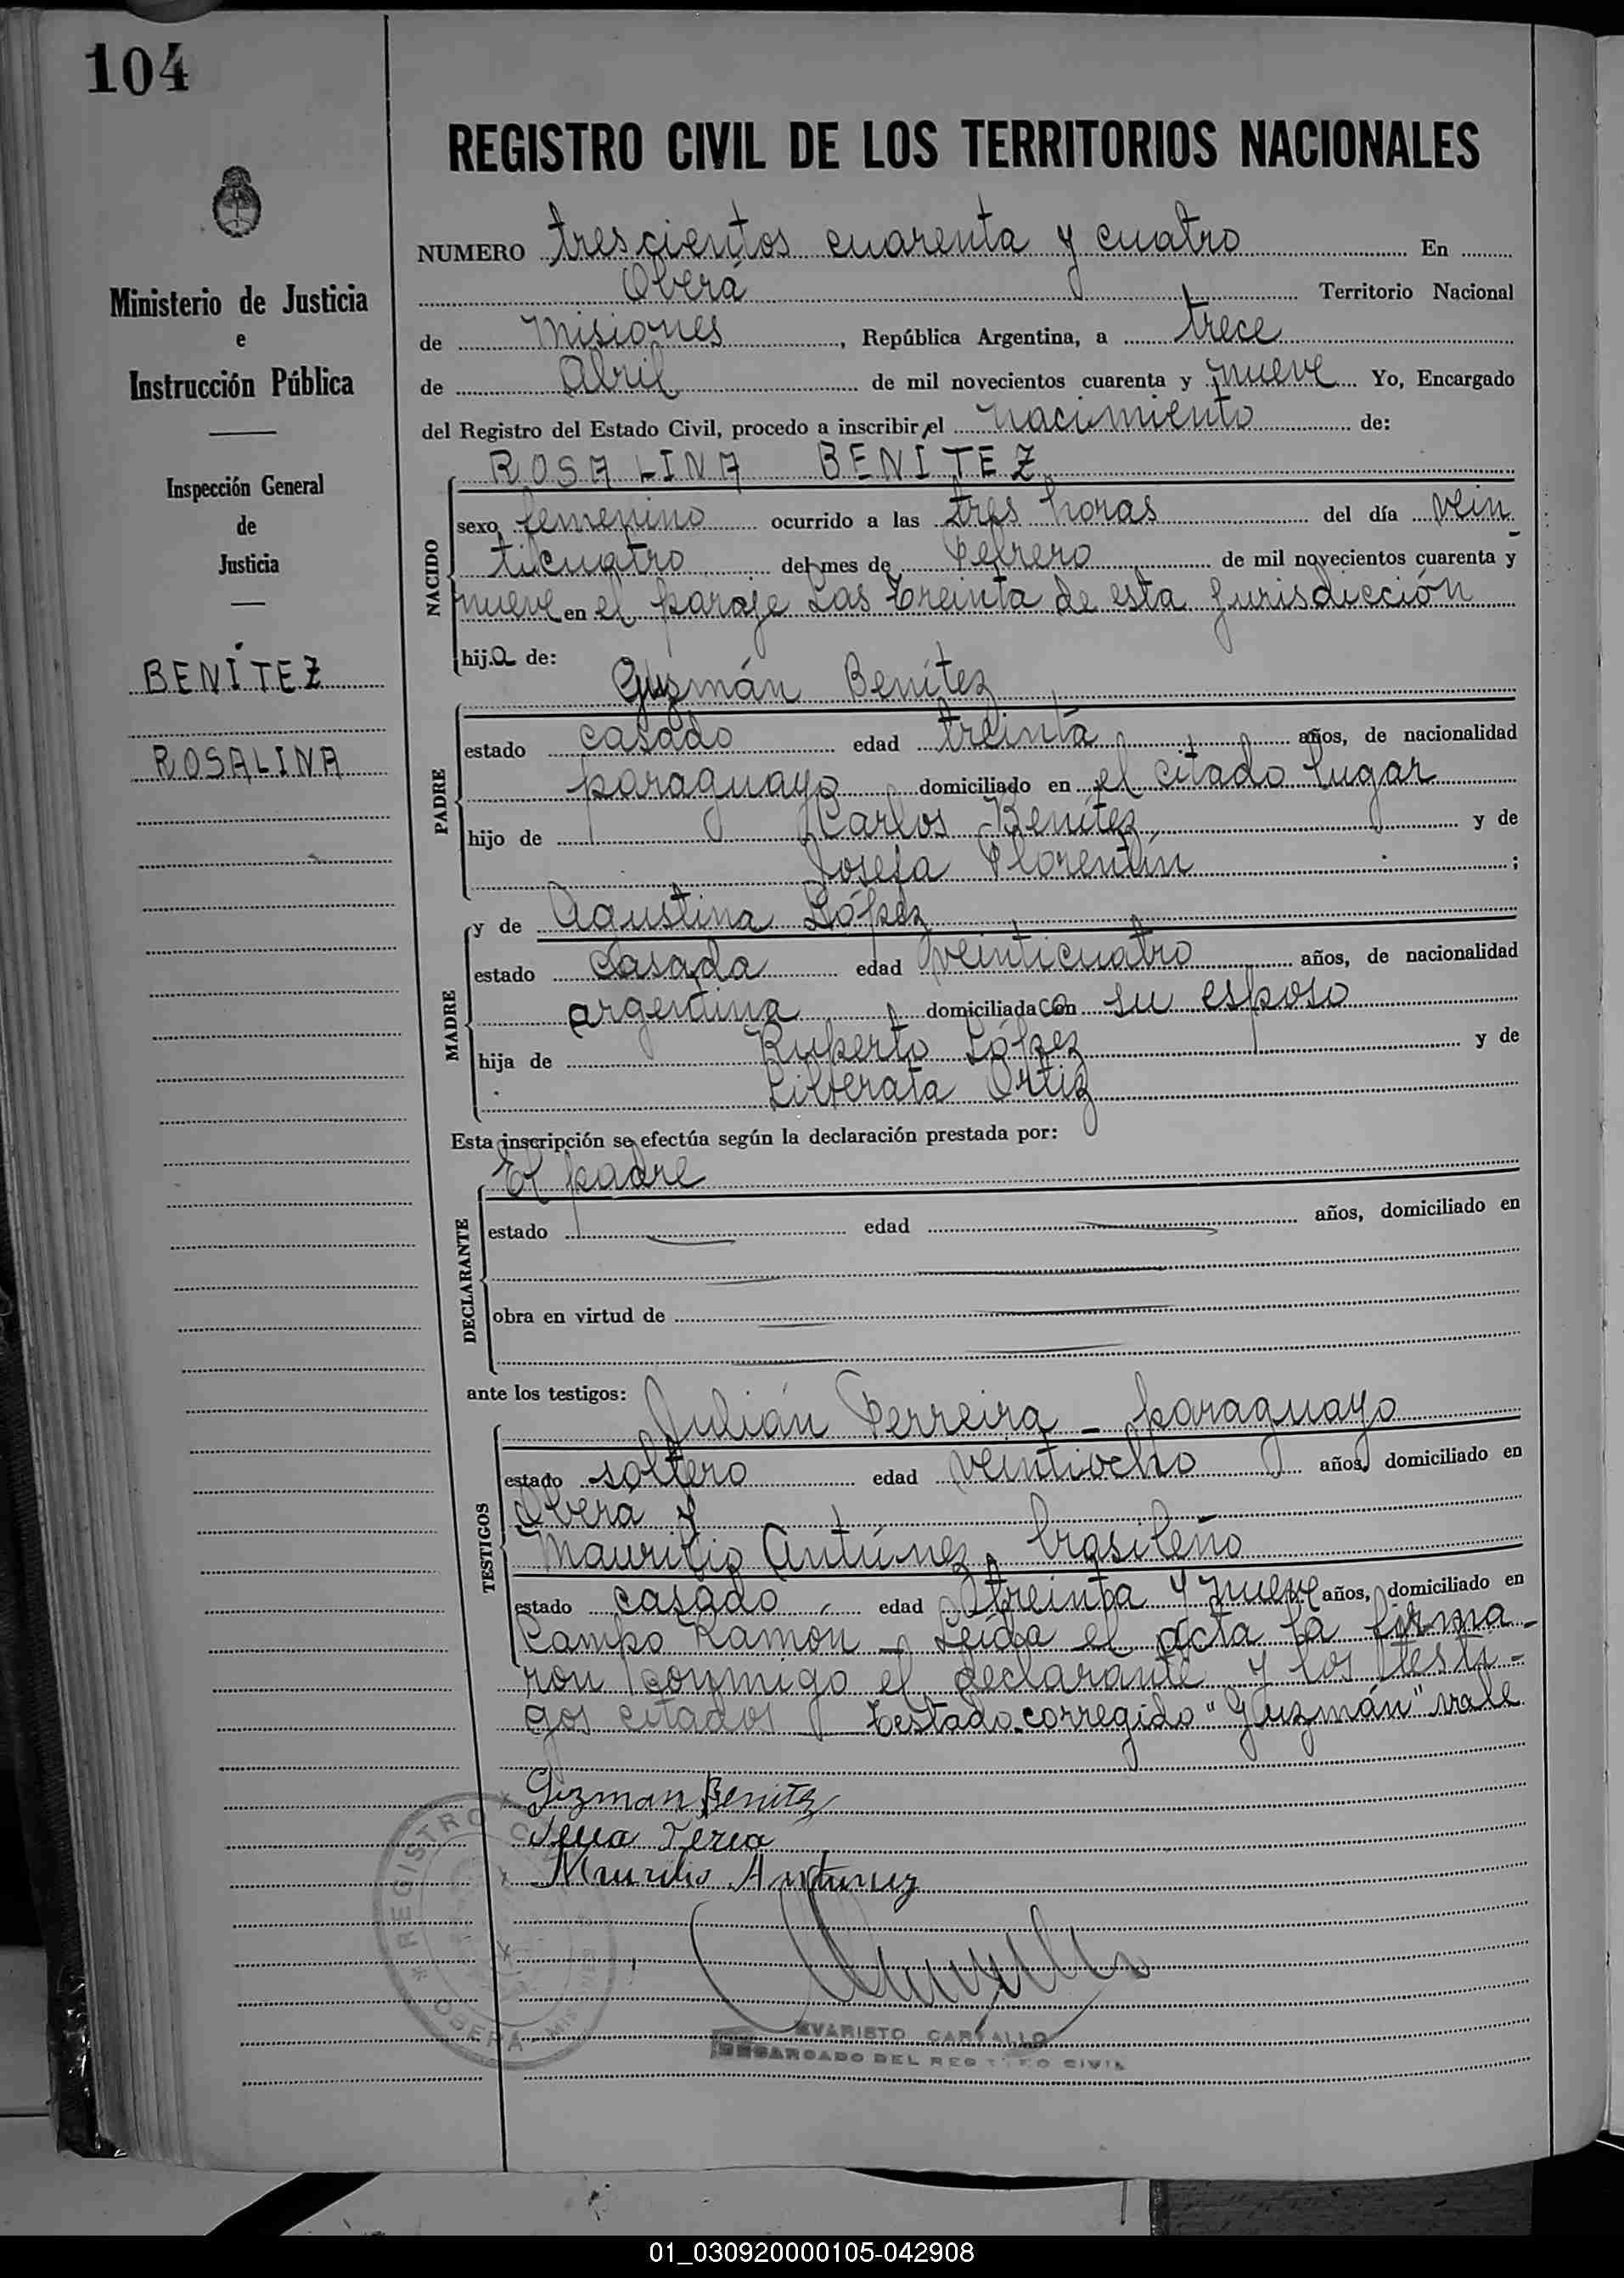 104
REGISTRO CIVIL DE LOS TERRITORIOS NACIONALES
Ministerio de Justicia
e
Instrucción Pública
Inspección General
de
Justicia
BENÍTEZ
ROSALINA
NUMERO trescientos cuarenta y cuatro En
Oberá Territorio Nacional
de Misiones, República Argentina, a trece
de Abril de mil novecientos cuarenta y nueve Yo, Encargado
del Registro del Estado Civil, procedo a inscribir el nacimiento de:
ROSALINA BENITEZ
NACIDO
sexo femenino ocurrido a las tres horas del día vein
ticuatro del mes de Febrero de mil novecientos cuarenta y
nueve en el paraje Las Treinta de esta jurisdicción
hija de:
Guzmán Benítez
PADRE
estado casado edad treinta años, de nacionalidad
paraguayo domiciliado en el citado lugar
hijo de Carlos Benítez y de
Josefa Florentín ;
MADRE
y de Agustina López
estado casada edad veinticuatro años, de nacionalidad
argentina domiciliada con su esposo
hija de Ruperto López y de
Liberata Ortiz
Esta inscripción se efectúa según la declaración prestada por:
DECLARANTE
El padre
estado edad años, domiciliado en
obra en virtud de
ante los testigos:
TESTIGOS
Julián Ferreira - paraguayo
estado soltero edad veintiocho años, domiciliado en
Oberá y
Maurilio Antúnez, brasileño
estado casado, edad treinta y nueve años, domiciliado en
Campo Ramon - Leída el acta la firma-
ron conmigo el declarante y los testi-
gos citados Testado-corregido "Guzmán" vale
Guzman Benitez
Maurilio Antunez
REGISTRO
OBERA - MISIONES
EVARISTO CARVALLO
ENCARGADO DEL REGISTRO CIVIL
01_030920000105-042908